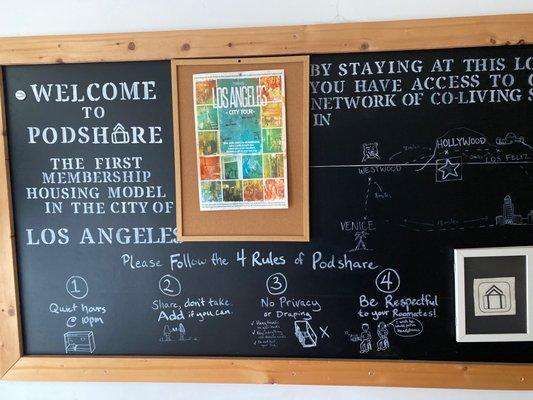 WELCOME
TO
PODSHARE
THE FIRST
MEMBERSHIP
HOUSING MODEL
IN THE CITY OF
LOS ANGELES
LOS ANGELES
- CITY TOUR -
BY STAYING AT THIS LO
YOU HAVE ACCESS TO
NETWORK OF CO-LIVING S
IN
HOLLYWOOD
LOS FELIZ
WESTWOOD
VENICE
Please Follow the 4 Rules of Podshare
1
Quiet hours
@ 10pm
2
Share, don't take.
Add if you can.
3
No Privacy
or Draping.
4
Be Respectful
to your Roomates!